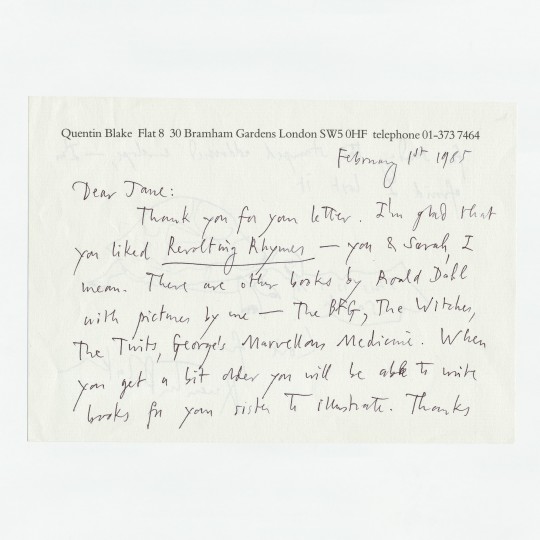 Quentin Blake Flat 8 30 Bramham Gardens London SW5 0HF telephone 01-373 7464
February 1st 1985
Dear Jane:
Thank you for your letter. I'm glad that
you liked Revolting Rhymes — you & Sarah, I
mean. There are other books by Roald Dahl
with pictures by me — The BFG, The Witches,
The Twits, George's Marvellous Medicine. When
you get a bit older you will be able to write
books for your sister to illustrate. Thanks